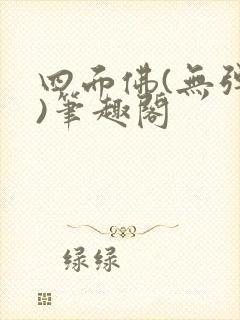 四面佛(無弹
)筆趣閣
绿绿